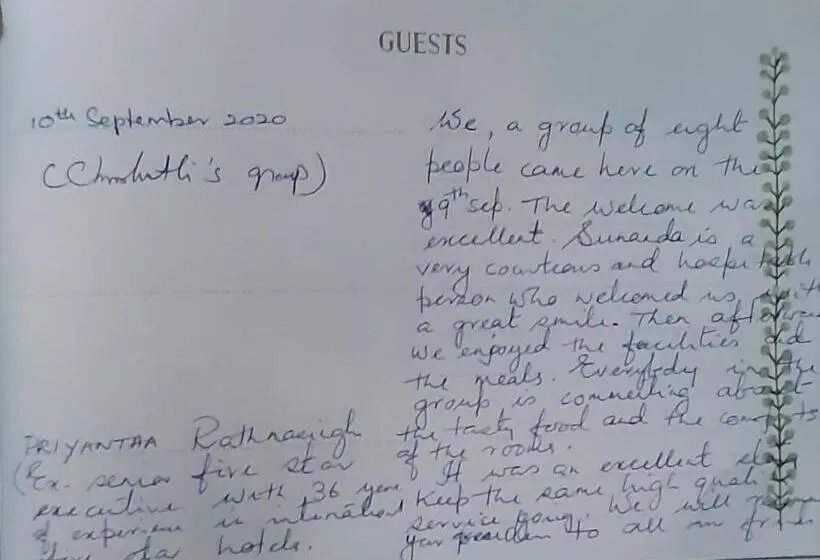 GUESTS
10th September 2020
('s group)
We, a group of eight
people came here on the
9th Sep. The welcome was
excellent. Sunanda is a
very courteous and hospitable
person who welcomed us with
a great smile. Then afterwards
we enjoyed the facilities and
the meals. Everybody in the
group is commenting about
the tasty food and the comforts
of the rooms.
It was an excellent
Keep the same high quality
service going. We will
your to all our friends
PRIYANTHA
(Ex. senior five star
executive with 36 years
of experience in international
five star hotels.